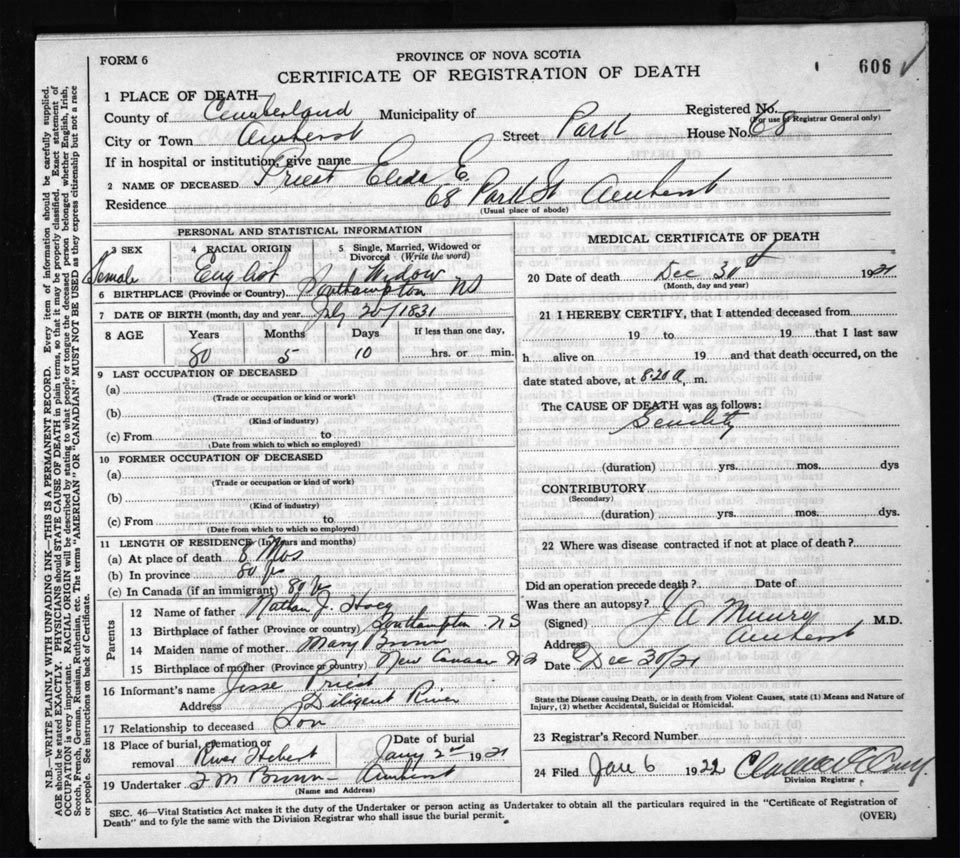 FORM 6
PROVINCE OF NOVA SCOTIA
CERTIFICATE OF REGISTRATION OF DEATH
606
1 PLACE OF DEATH—
County of Cumberland Municipality of Registered No.
(For use of Registrar General only)
City or Town Amherst Street Park House No. 68
If in hospital or institution, give name
2 NAME OF DECEASED Priest E.
Residence 68 Park St Amherst
(Usual place of abode)
PERSONAL AND STATISTICAL INFORMATION
3 SEX Female
4 RACIAL ORIGIN English
5 Single, Married, Widowed or Divorced (Write the word) Widow
6 BIRTHPLACE (Province or Country) Southampton NS
7 DATE OF BIRTH (month, day and year) July 20/1831
8 AGE Years Months Days If less than one day,
80 5 10 hrs. or min.
9 LAST OCCUPATION OF DECEASED
(a)
(Trade or occupation or kind or work)
(b)
(Kind of industry)
(c) From to
(Date from which to which so employed)
10 FORMER OCCUPATION OF DECEASED
(a)
(Trade or occupation or kind of work)
(b)
(Kind of industry)
(c) From to
(Date from which to which so employed)
11 LENGTH OF RESIDENCE (In years and months)
(a) At place of death 8 Mos
(b) In province 80 Yrs
(c) In Canada (if an immigrant) 80 Yrs
Parents
12 Name of father Nathan J. Hoeg
13 Birthplace of father (Province or country) Southampton NS
14 Maiden name of mother Mary Brown
15 Birthplace of mother (Province or country) New Canaan NS
16 Informant's name Jesse Priest
Address Diligent River
17 Relationship to deceased Son
18 Place of burial, cremation or removal River Hebert
Date of burial Jany 2nd 1921
19 Undertaker F M Brown Amherst
(Name and Address)
MEDICAL CERTIFICATE OF DEATH
20 Date of death Dec 30th 1921
(Month, day and year)
21 I HEREBY CERTIFY, that I attended deceased from
19 to 19 that I last saw
h alive on 19 and that death occurred, on the
date stated above, at 8.20 a, m.
The CAUSE OF DEATH was as follows:
Senility
(duration) yrs. mos. dys
CONTRIBUTORY
(Secondary)
(duration) yrs. mos. dys.
22 Where was disease contracted if not at place of death?
Did an operation precede death? Date of
Was there an autopsy?
(Signed) J A Munro M.D.
Address Amherst
Date Dec 30/21
State the Disease causing Death, or in death from Violent Causes, state (1) Means and Nature of
Injury, (2) whether Accidental, Suicidal or Homicidal.
23 Registrar's Record Number
24 Filed Jan 6 1922
Division Registrar
SEC. 46—Vital Statistics Act makes it the duty of the Undertaker or person acting as Undertaker to obtain all the particulars required in the "Certificate of Registration of
Death" and to fyle the same with the Division Registrar who shall issue the burial permit.
(OVER)
N.B.—WRITE PLAINLY WITH UNFADING INK—THIS IS A PERMANENT RECORD. Every item of information should be carefully supplied.
AGE should be stated EXACTLY. PHYSICIANS should STATE CAUSE OF DEATH in plain terms, so that it may be properly classified. Exact statement of
OCCUPATION is very important. RACIAL ORIGIN will be described by stating to what people or tongue the deceased person belonged whether English, Irish,
Scotch, French, German, Russian, Ruthenian, etc. The terms "AMERICAN" OR "CANADIAN" MUST NOT BE USED as they express citizenship but not a race
or people. See instructions on back of Certificate.